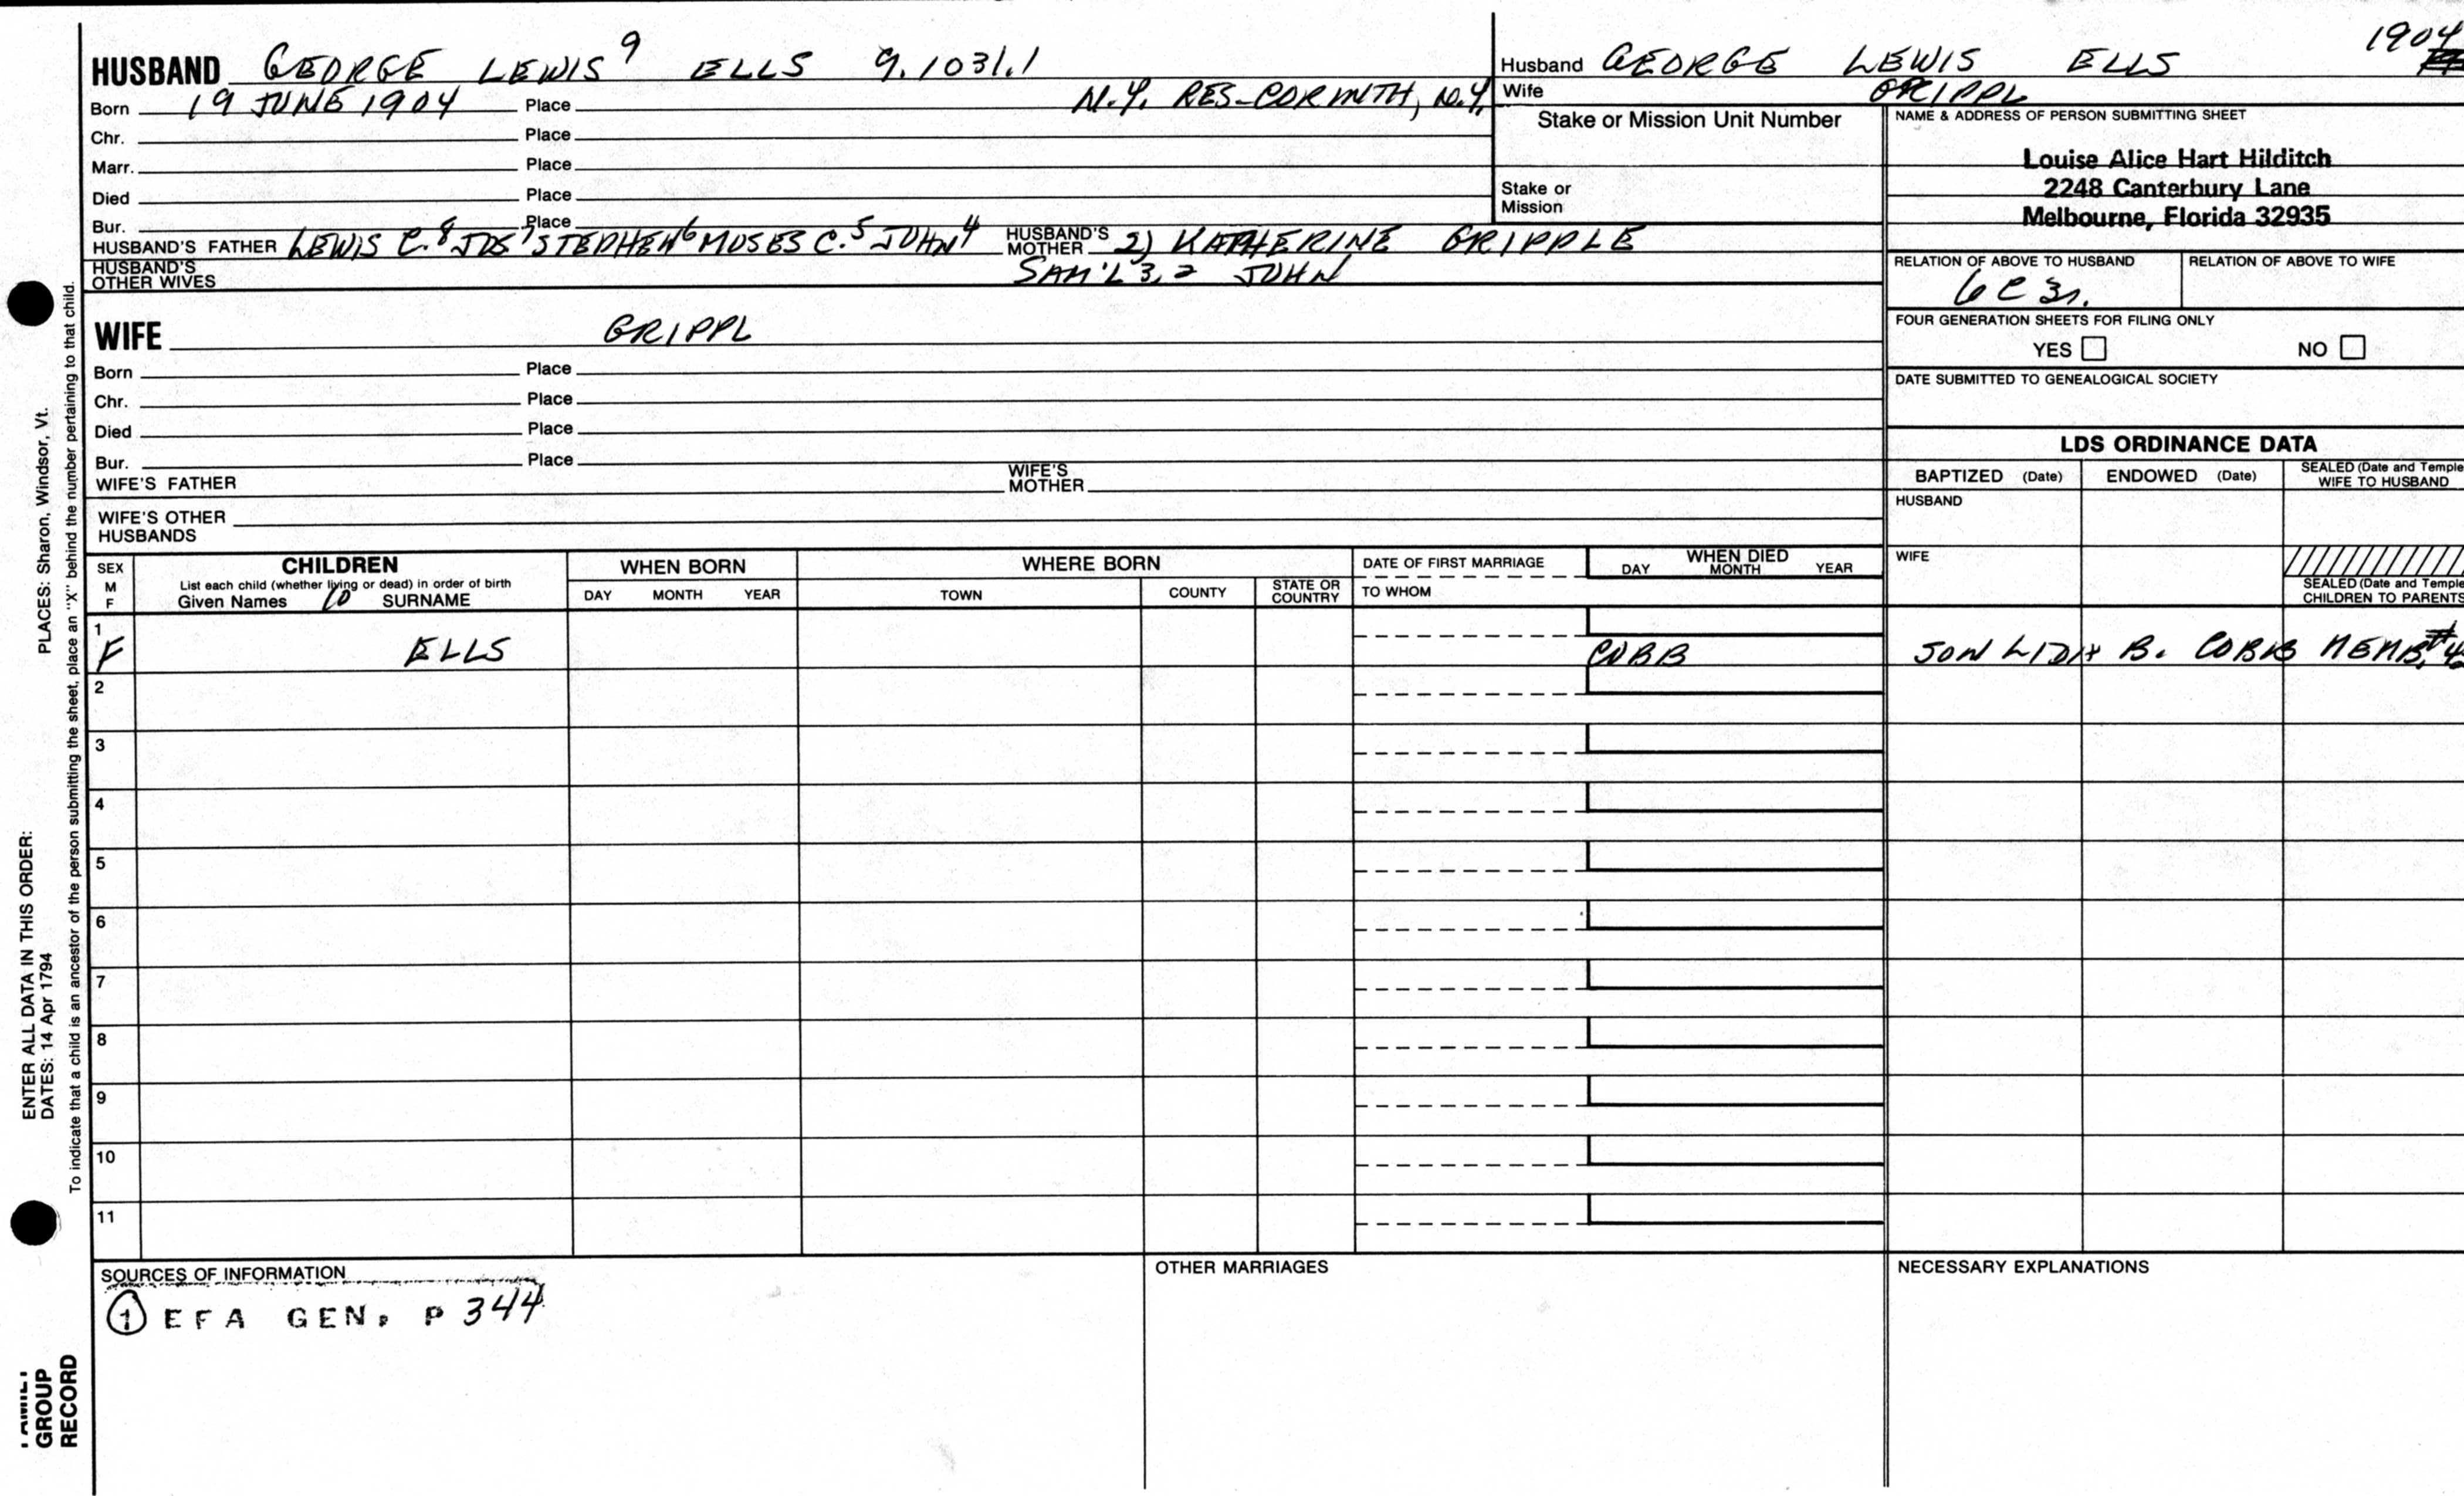 HUSBAND GEORGE LEWIS⁹ ELLS 9.1031.1
Born 19 JUNE 1904 Place N.Y. RES-CORINTH, N.Y.
Chr. Place
Marr. Place
Died Place
Bur. Place
HUSBAND'S FATHER LEWIS C.⁸ JOS⁷ STEPHEN⁶ MOSES C.⁵ JOHN⁴ HUSBAND'S MOTHER 2) KATHERINE GRIPPLE
HUSBAND'S OTHER WIVES SAM'L 3,2 JOHN
Husband GEORGE LEWIS ELLS 1904
Wife GRIPPL
Stake or Mission Unit Number
Stake or Mission
NAME & ADDRESS OF PERSON SUBMITTING SHEET
Louise Alice Hart Hilditch
2248 Canterbury Lane
Melbourne, Florida 32935
RELATION OF ABOVE TO HUSBAND RELATION OF ABOVE TO WIFE
6C3r.
FOUR GENERATION SHEETS FOR FILING ONLY
YES NO
DATE SUBMITTED TO GENEALOGICAL SOCIETY
WIFE GRIPPL
Born Place
Chr. Place
Died Place
Bur. Place
WIFE'S FATHER WIFE'S MOTHER
WIFE'S OTHER HUSBANDS
LDS ORDINANCE DATA
BAPTIZED (Date) ENDOWED (Date) SEALED (Date and Temple
WIFE TO HUSBAND
HUSBAND
WIFE
SEALED (Date and Temple
CHILDREN TO PARENTS
SEX
M
F
CHILDREN
List each child (whether living or dead) in order of birth
Given Names 10 SURNAME
WHEN BORN
DAY MONTH YEAR
WHERE BORN
TOWN COUNTY STATE OR COUNTRY
DATE OF FIRST MARRIAGE
TO WHOM
WHEN DIED
DAY MONTH YEAR
1
F ELLS COBB SON LIDIA B. COBB MEMB. #4
2
3
4
5
6
7
8
9
10
11
SOURCES OF INFORMATION
① EFA GEN. P 344
OTHER MARRIAGES
NECESSARY EXPLANATIONS
PLACES: Sharon, Windsor, Vt.
ENTER ALL DATA IN THIS ORDER:
DATES: 14 Apr 1794
To indicate that a child is an ancestor of the person submitting the sheet, place an "X" behind the number pertaining to that child.
FAMILY
GROUP
RECORD